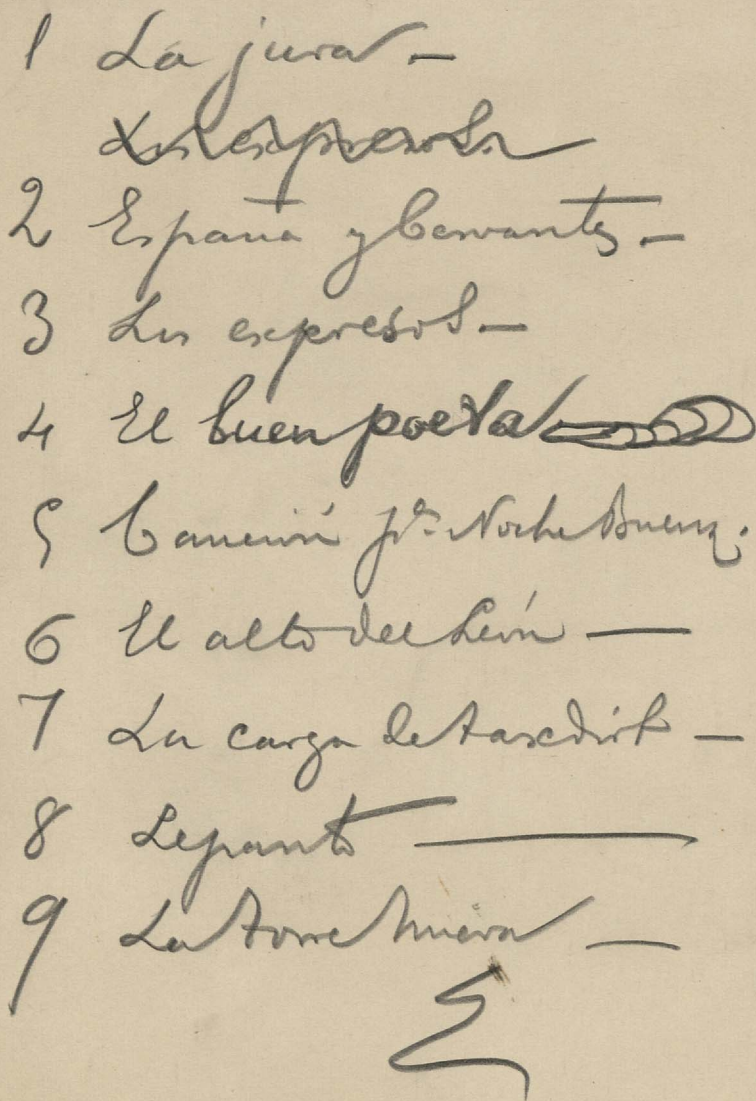 1 La jura —
Los expresos
2 España y Cervantes. —
3 Los expresos —
4 El buen poeta
5 Canción pª Noche Buena.
6 El alto del León —
7 La carga de taxdirt —
8 Lepanto —
9 La torre nueva —